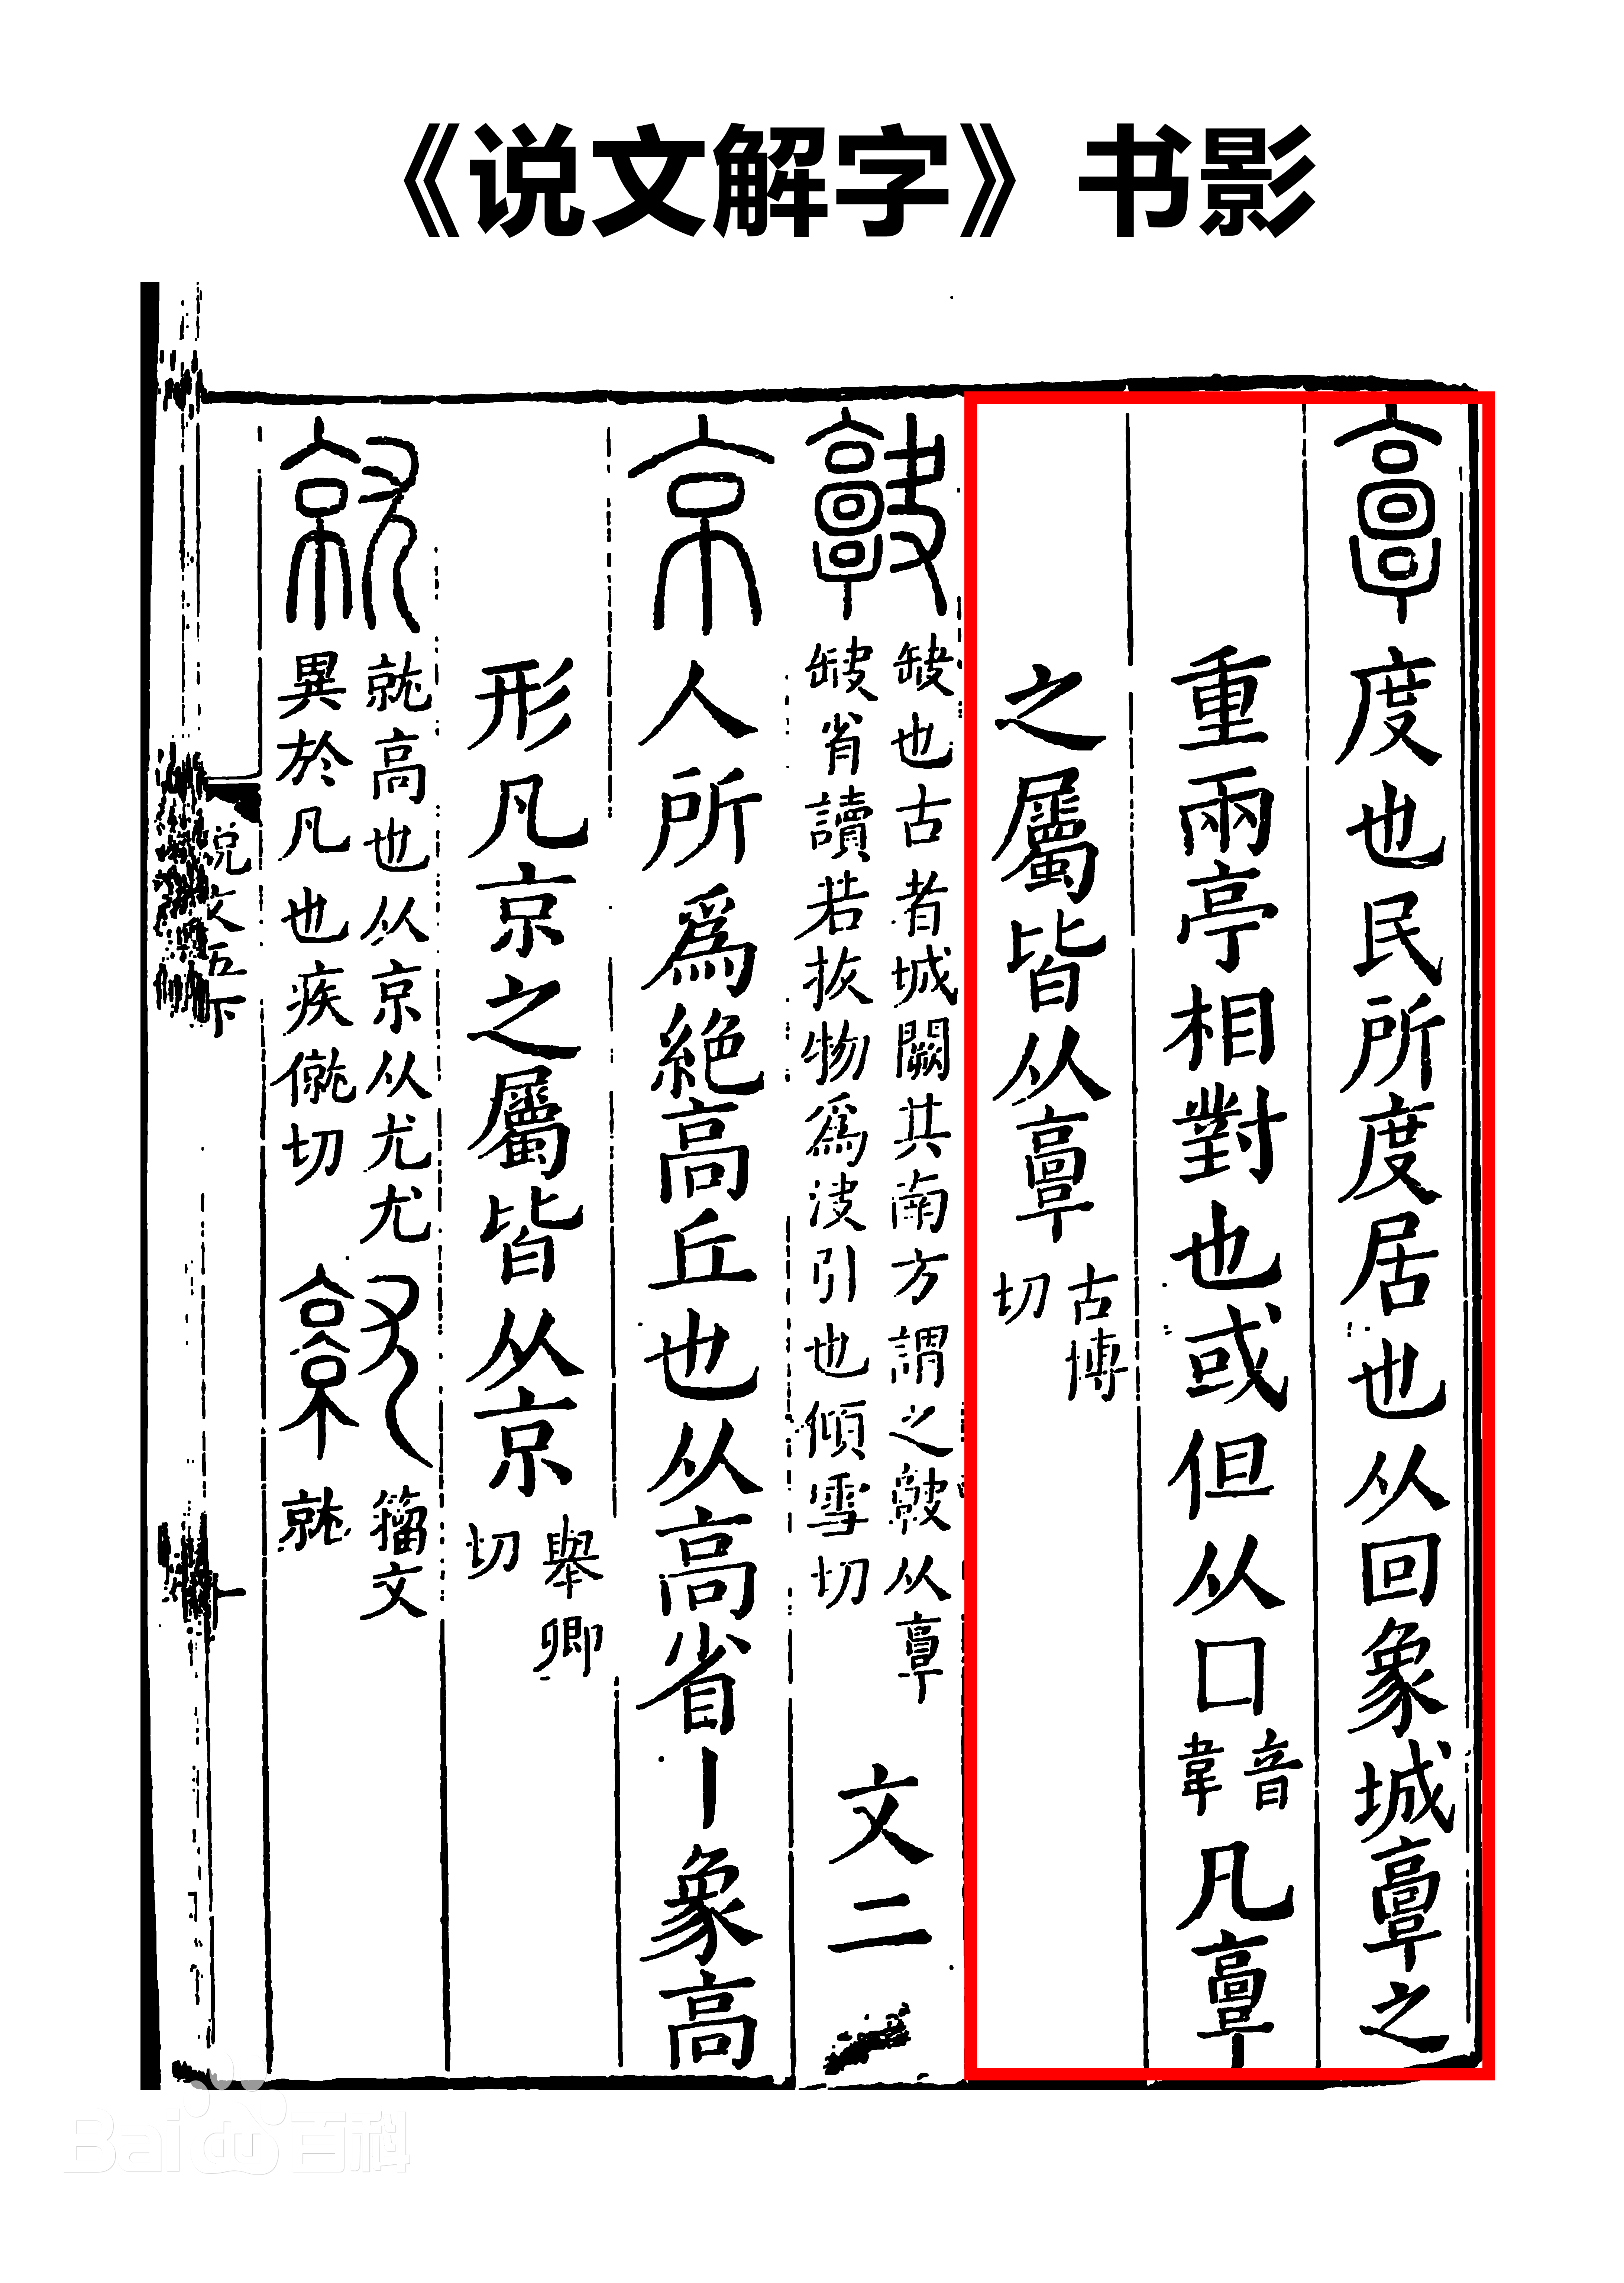 《说文解字》书影
𩫏度也民所度居也从回象城𩫏之
重兩亭相對也或但从口音韋凡𩫏
之屬皆从𩫏古博切
𩫨缺也古者城闕其南方謂之𩫨从𩫏
缺省讀若拔物爲決引也傾雪切
文二
京人所爲絕高丘也从高省丨象高
形凡京之屬皆从京舉卿切
就就高也从京从尤尤
異於凡也疾僦切
籒文
就
说文五下
十
Bai百科